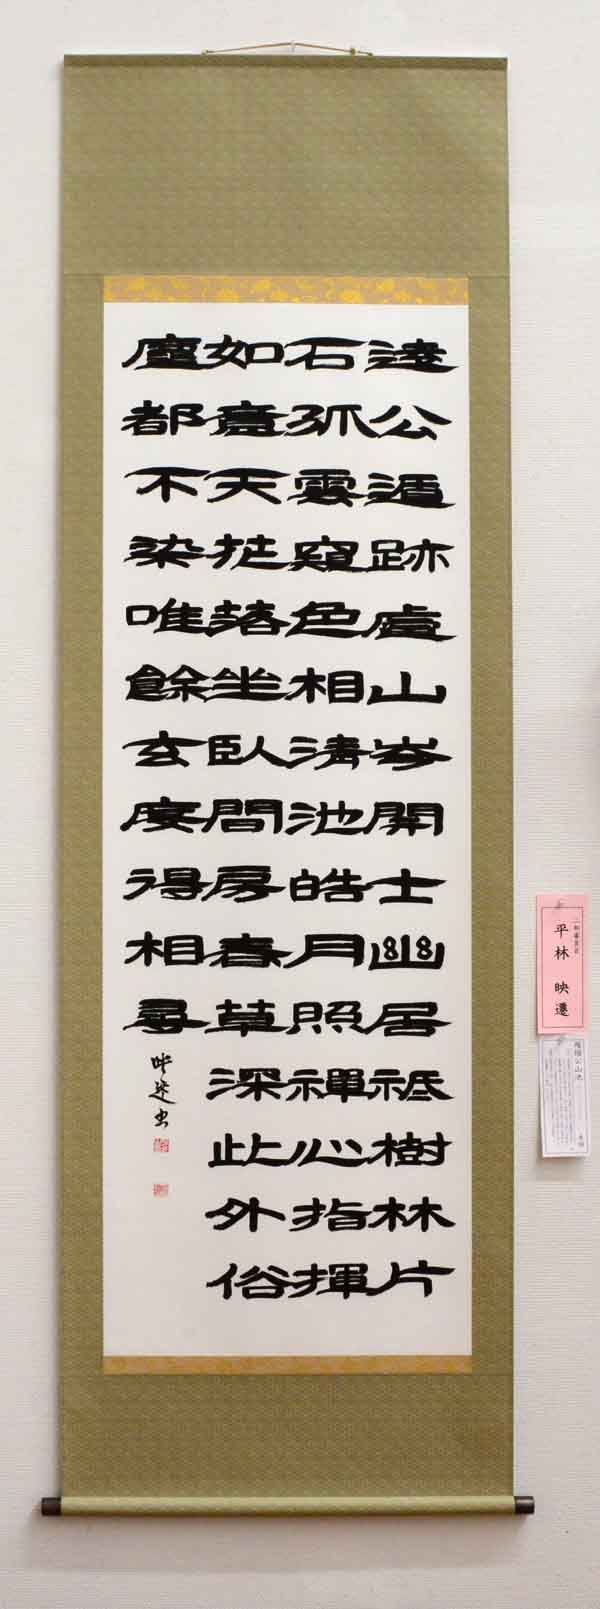 遠公遁跡廬山岑開士幽居祇樹林片
石孤雲窺色相清池皓月照禪心指揮
如意天花落坐臥間房春草深此外俗
塵都不染唯餘玄度得相尋
映遷書
平林 映遷
題璿公山池